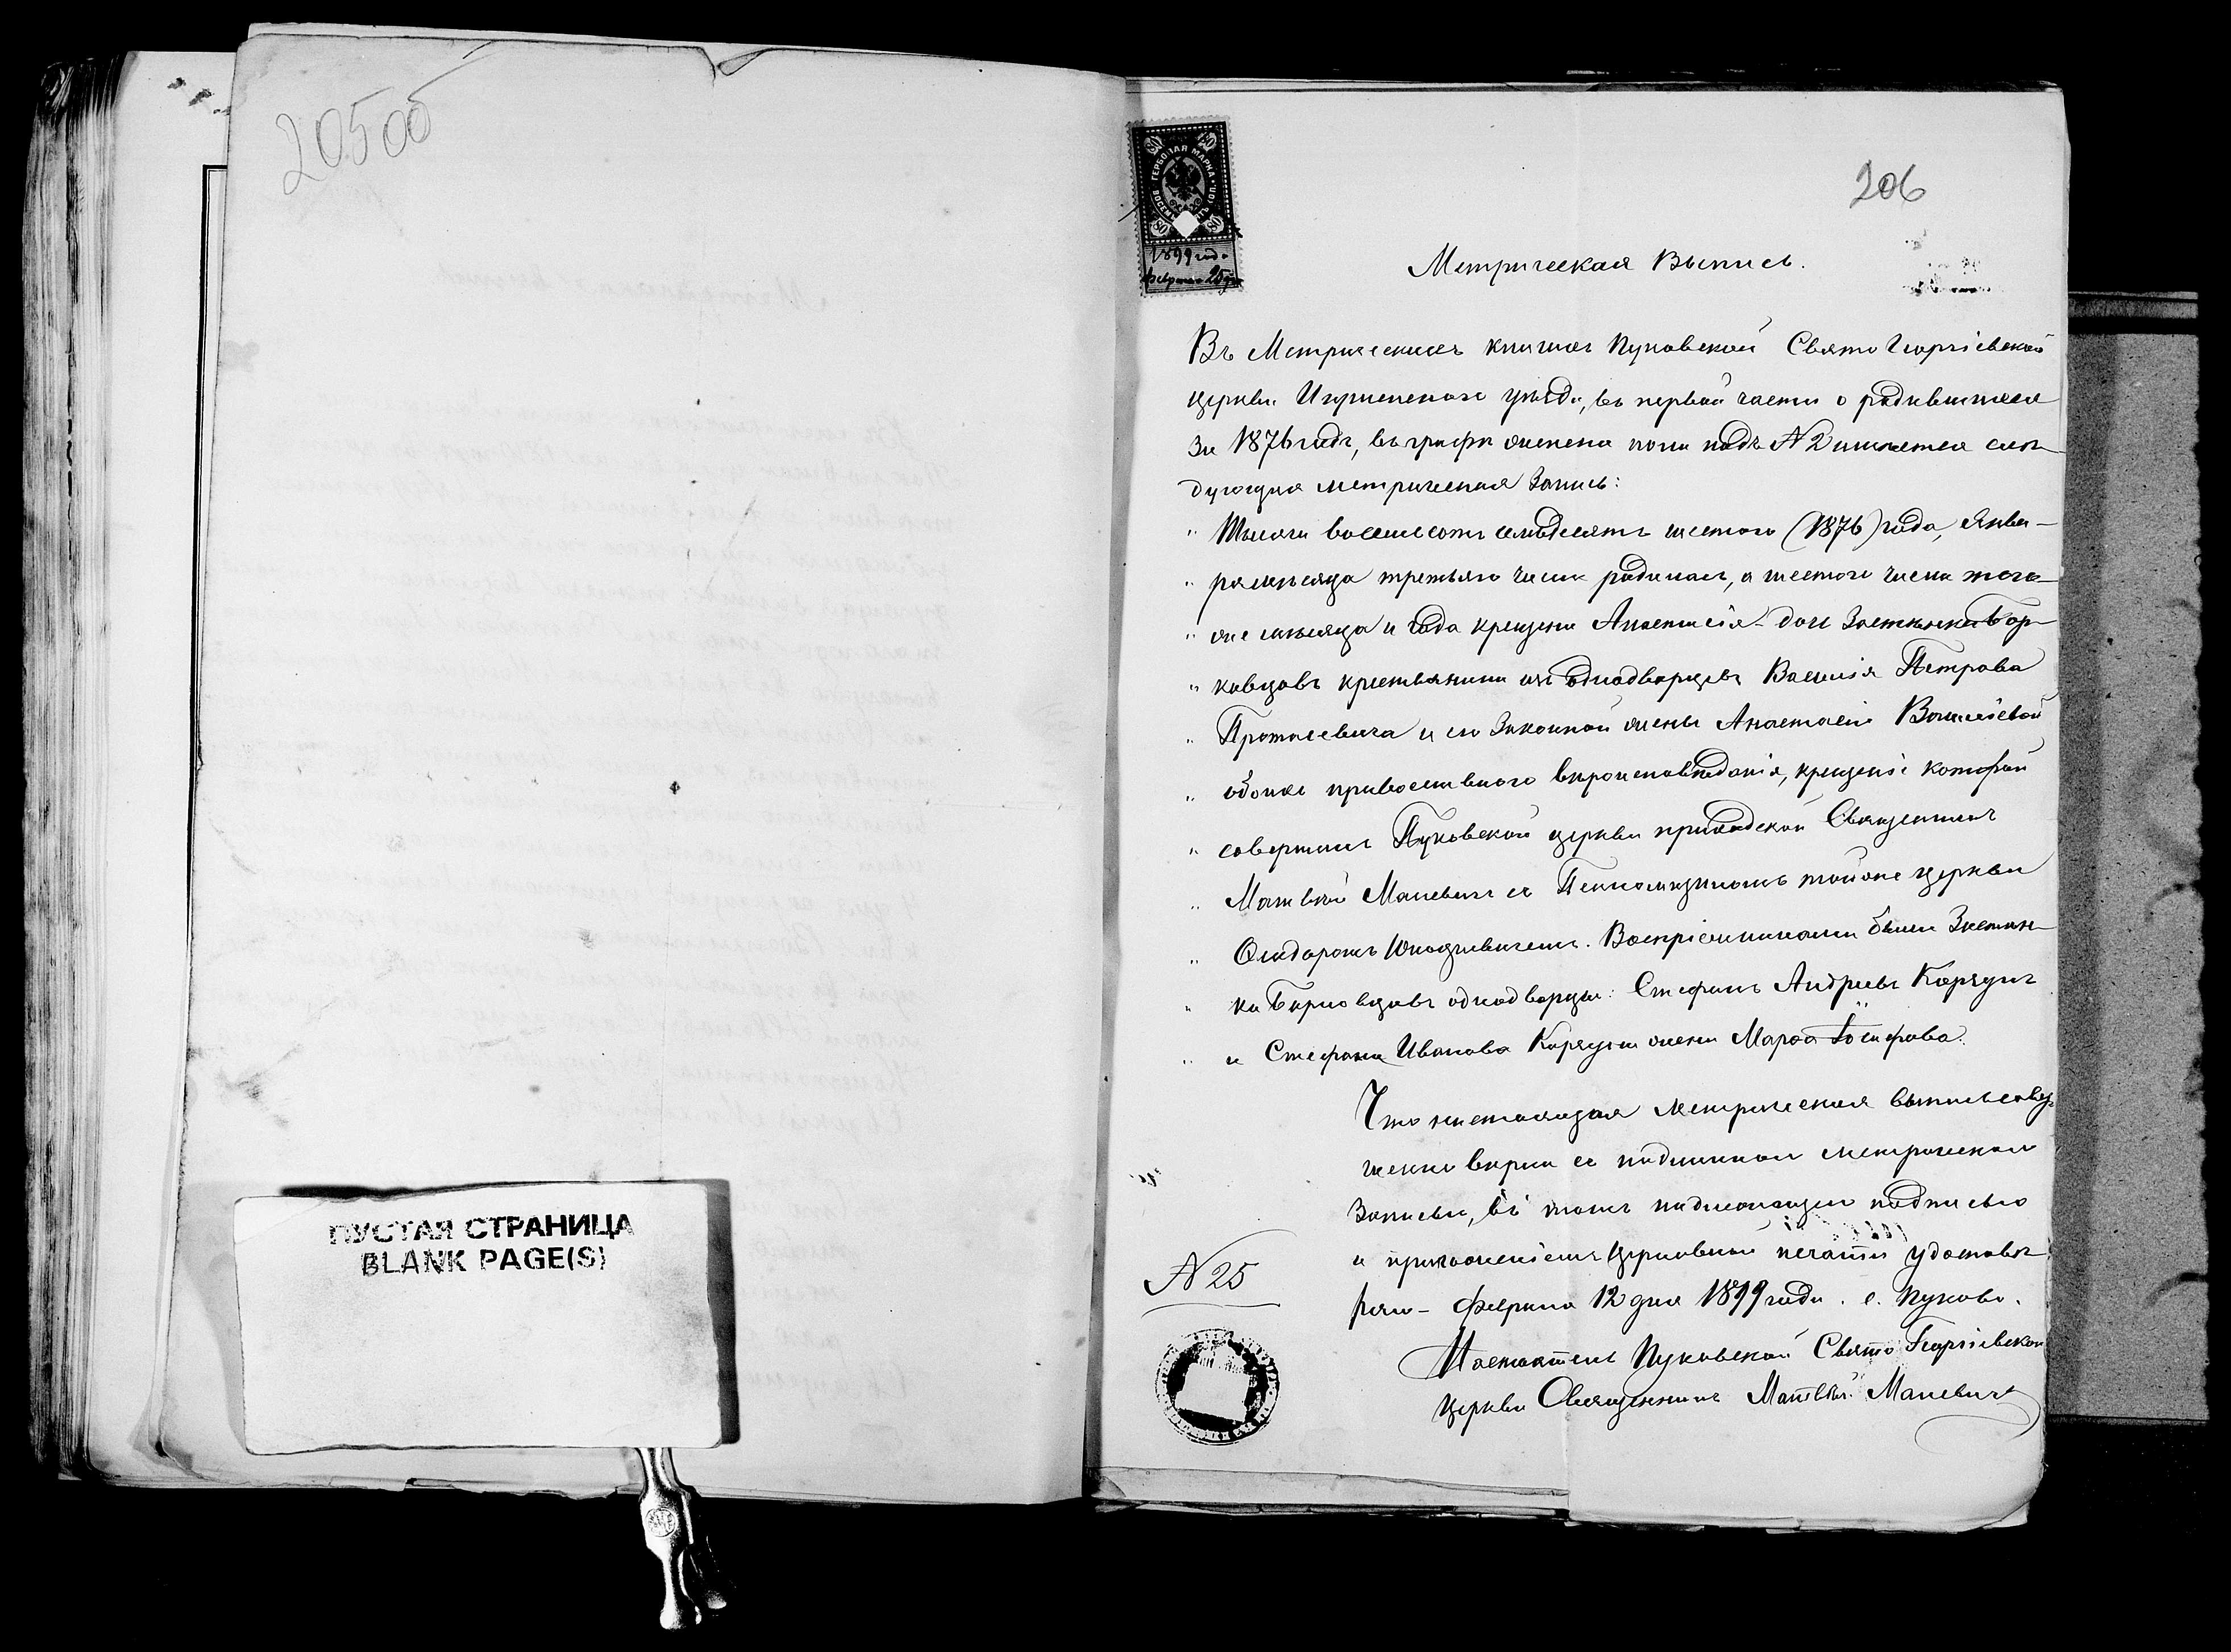 205об
ПУСТАЯ СТРАНИЦА
BLANK PAGE(S)
206
ГЕРБОВАЯ МАРКА
80
1899 года
февраля 25 дня
Метрическая Выпись.
Въ Метрическихъ книгахъ Пуковской Свято Георгіевской
церкви Игуменскаго уѣзда, въ первой части о родившихся
за 1876 годъ, въ графѣ женска пола подъ № 2 имѣется слѣ-
дующая метрическая запись:
" Тысяча восемьсотъ семьдесятъ шестого (1876) года, Янва-
" ря мѣсяца третьяго числа родилась, а шестого числа того-
" же мѣсяца и года крещена Анастасія - дочь Застѣнка Бор-
" ковцовъ крестьянина изъ однодворцевъ Василія Петрова
" Протасевича и его законной жены Анастасіи Васильевой
" обоихъ православнаго вѣроисповѣданія, крещеніе которой
" совершилъ Пуковской церкви приходской Священникъ
" Матвѣй Маневичъ съ Псаломщикомъ тойже церкви
" Юноцкевичемъ. Воспріемниками были Застѣн-
" ка Борковцовъ однодворцы: Стефанъ Андреевъ
" и Стефана Иванова жена Марѳа Іосифова.
Что настоящая метрическая выпись совер-
шенно вѣрна съ подлинною метрическою
записью, въ томъ надлежащею подписью
и приложеніемъ церковной печати удостовѣ-
ряю - Февраля 12 дня 1899 года. с. Пуково.
№ 25
Настоятель Пуковской Свято Георгіевской
церкви Священникъ Матвѣй Маневичъ